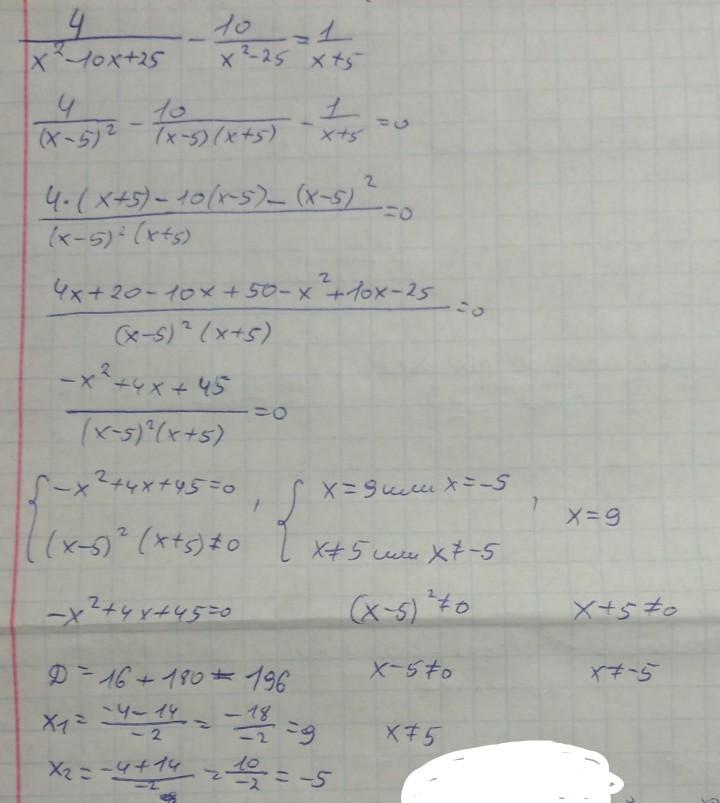 4/(x²-10x+25) - 10/(x²-25) = 1/(x+5)
4/(x-5)² - 10/((x-5)(x+5)) - 1/(x+5) = 0
(4·(x+5) - 10(x-5) - (x-5)²)/((x-5)²(x+5)) = 0
(4x+20-10x+50-x²+10x-25)/((x-5)²(x+5)) = 0
(-x²+4x+45)/((x-5)²(x+5)) = 0
{ -x²+4x+45=0 , { x=9 или x=-5 , x=9
(x-5)²(x+5)≠0 x≠5 или x≠-5
-x²+4x+45=0 (x-5)²≠0 x+5≠0
D=16+180=196 x-5≠0 x≠-5
x1 = (-4-14)/(-2) = (-18)/(-2) = 9 x≠5
x2 = (-4+14)/(-2) = 10/(-2) = -5